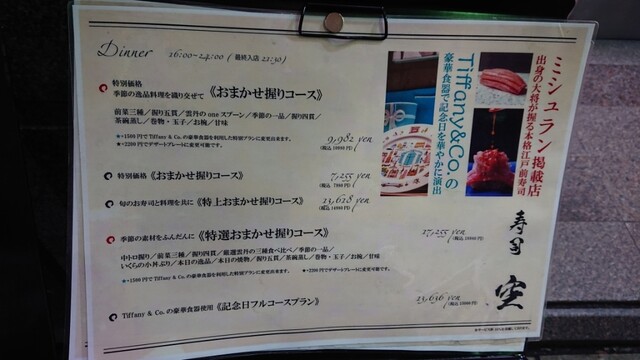 Dinner 16:00~24:00 (最終入店 21:30)
特別価格
季節の逸品料理を織り交ぜて《おまかせ握りコース》
前菜三種／握り五貫／雲丹の one スプーン／季節の一品／握り四貫／
茶碗蒸し／巻物・玉子／お椀／甘味
9,982 yen
★+1500円で Tiffany & Co. の豪華食器を利用した特別プランに変更出来ます。
★+2200円でデザートプレートに変更可能です。
特別価格《おまかせ握りコース》
7,255 yen
旬のお寿司と料理を共に《特上おまかせ握りコース》
季節の素材をふんだんに《特選おまかせ握りコース》
17,255 yen
中トロ握り／前菜三種／握り四貫／厳選雲丹の三種食べ比べ／季節の一品／
いくらの小丼ぶり／本日の逸品／本日の焼物／握り五貫／茶碗蒸し／巻物・玉子／お椀／甘味
★+1500円で Tiffany & Co. の豪華食器を利用した特別プランに変更出来ます。 ★+2200円でデザートプレートに変更可能です。
Tiffany & Co. の豪華食器使用《記念日フルコースプラン》
23,636 yen
ミシュラン掲載店
出身の大将が握る本格江戸前寿司
Tiffany&Co.の
豪華食器で記念日を華やかに演出
寿司
空